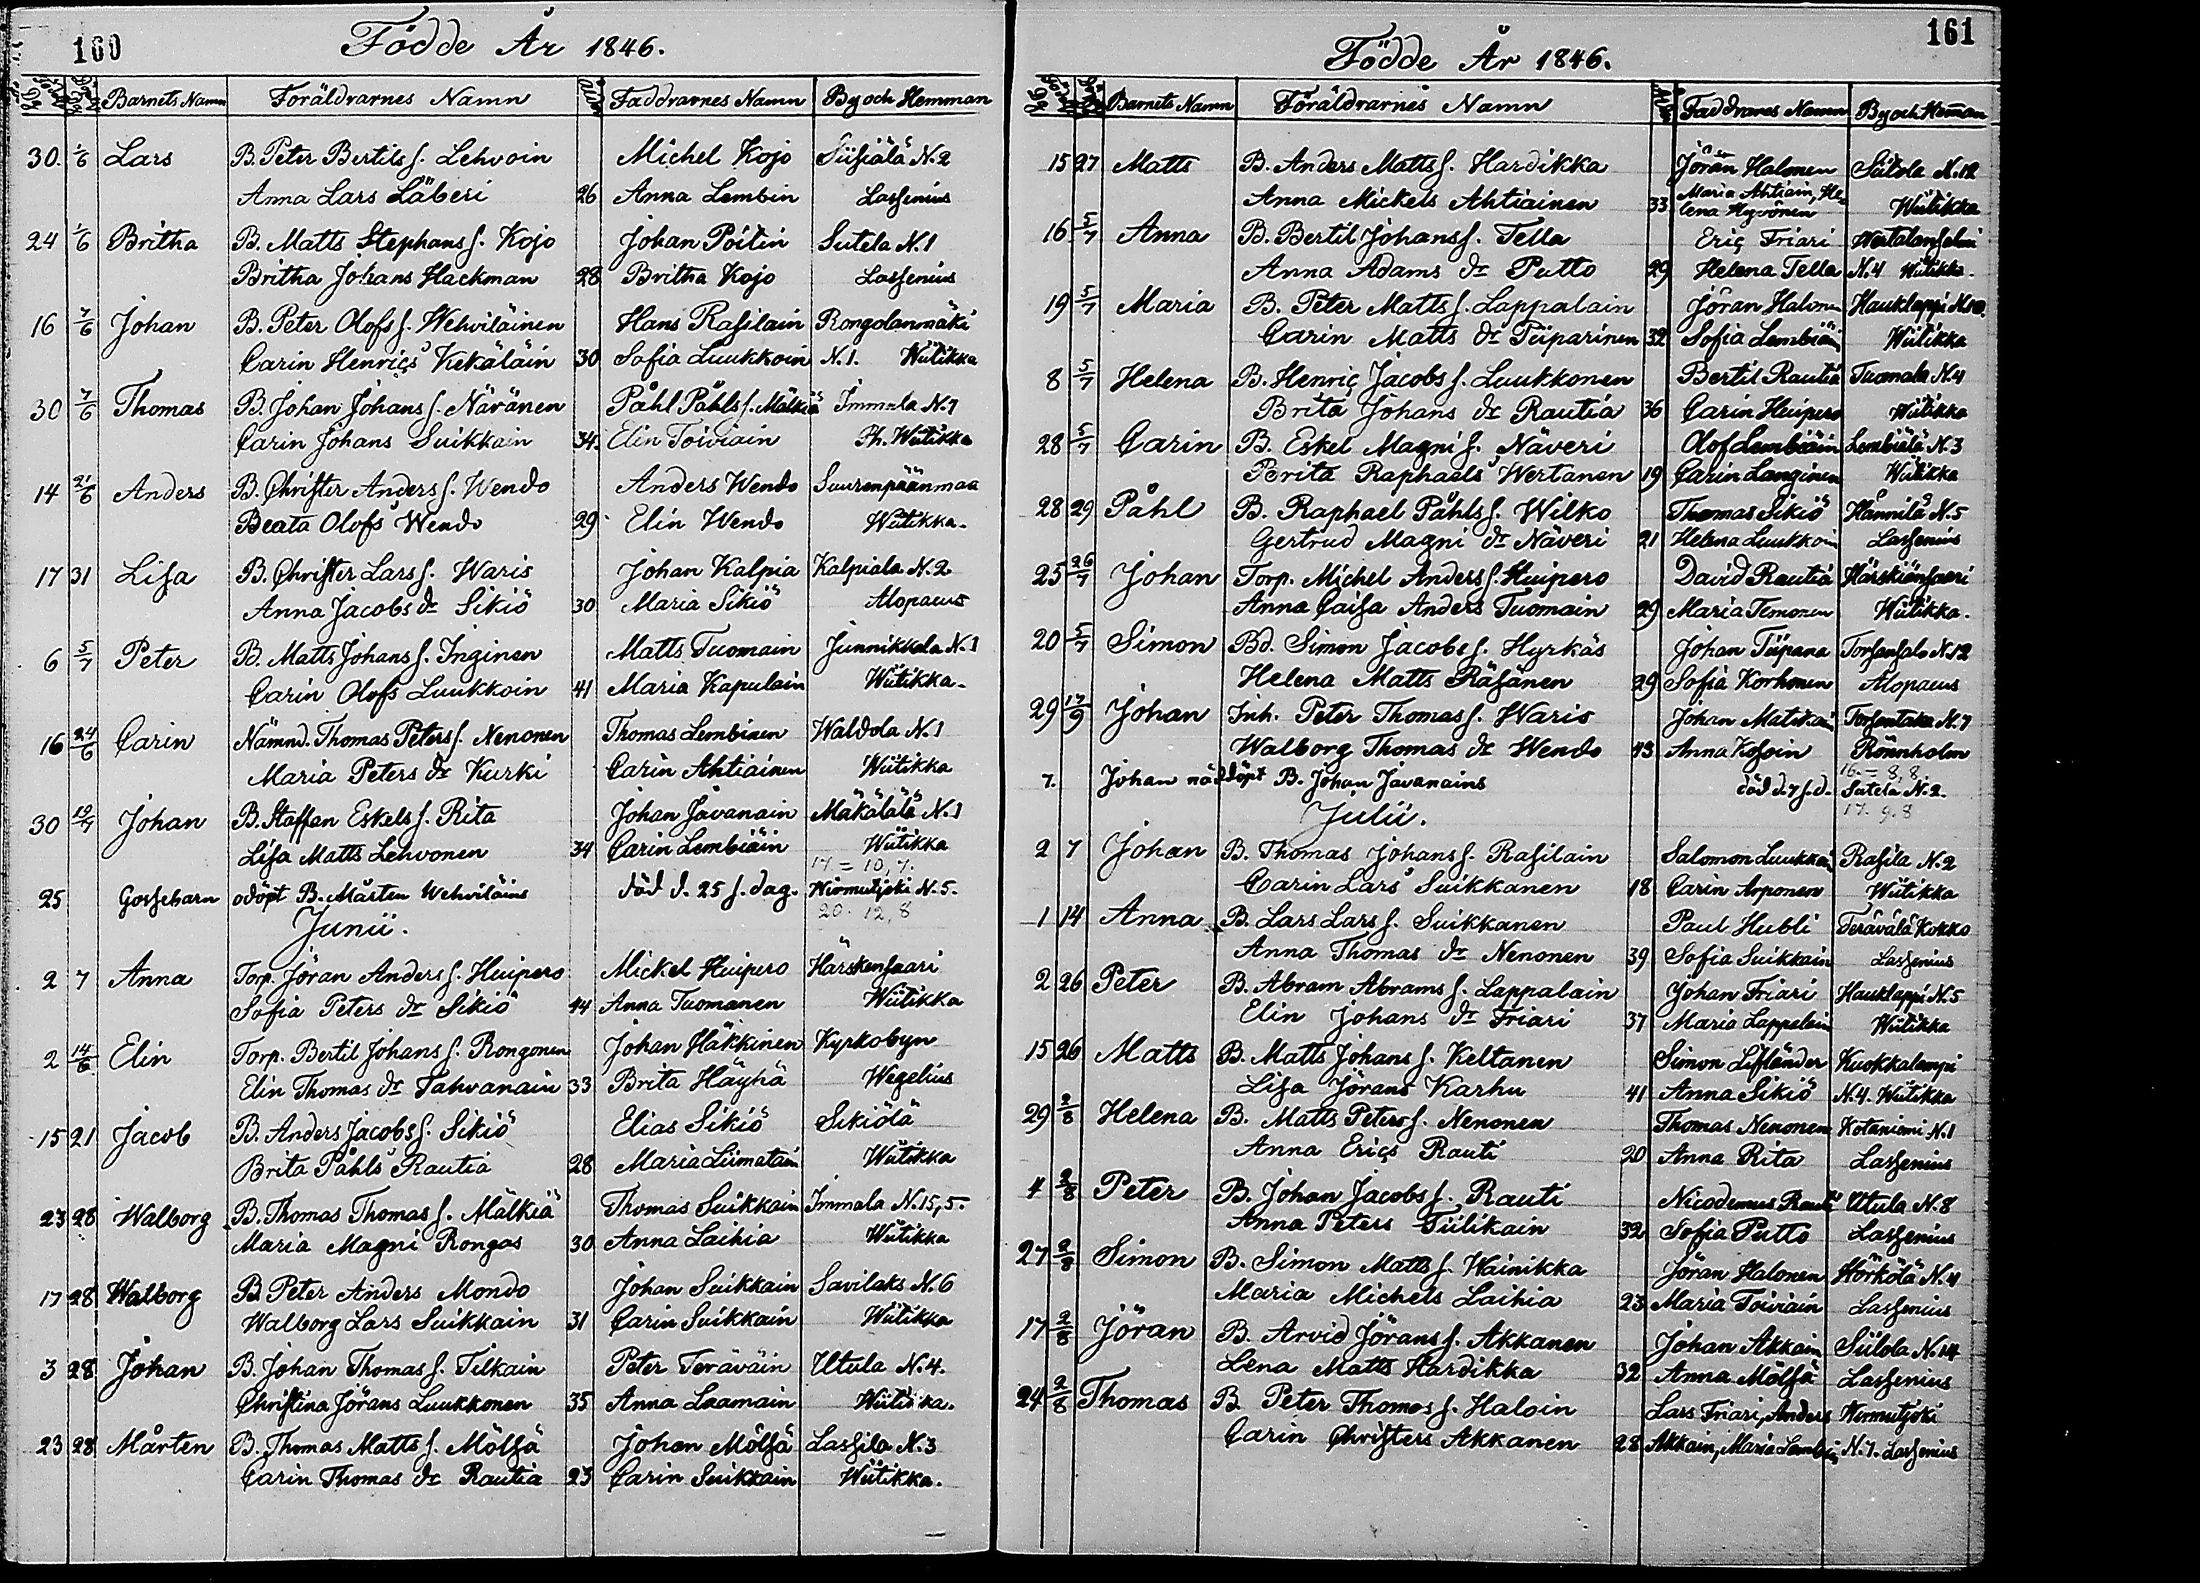 160
Födde År 1846.
Barnets Namn Föräldrarnes Namn Faddrarnes Namn By och Hemman
30. 1/6 Lars B. Peter Bertils s. Lehvoin Michel Kojo Siisiälä N. 2
Anna Lars Läberi 26 Anna Lembin Lassenius
24 1/6 Britha B. Matts Stephans s. Kojo Johan Poitin Sutela N. 1
Britha Johans Hackman 28 Britha Kojo Lassenius
16 7/6 Johan B. Peter Olofs s. Wehviläinen Hans Rasilain Rongolanmäki
Carin Henrics Kekäläin 30 Sofia Luukkoin N. 1. Wiitikka
30 7/6 Thomas B. Johan Johans s. Näränen Påhl Påhls s. Mälkiä Immala N. 7
Carin Johans Suikkain 34. Elin Toiviain Ph. Wiitikka
14 21/6 Anders B. Christer Anders s. Wendo Anders Wendo Suurenpäänmaa
Beata Olofs Wendo 29 Elin Wendo Wiitikka.
17 31 Lisa B. Christer Lars s. Waris Johan Kalpia Kalpiala N. 2
Anna Jacobs dr Sikiö 30 Maria Sikiö Alopaeus
6 5/7 Peter B. Matts Johans s. Inginen Matts Tuomain Junnikkala N. 1
Carin Olofs Luukkoin 41 Maria Kapulain Wiitikka.
16 24/6 Carin Nämnd. Thomas Peters s. Nenonen Thomas Lembinen Waldola N. 1
Maria Peters dr Kurki Carin Ahtiainen Wiitikka
30 19/7 Johan B. Staffan Eskels s. Rita Johan Javanain Mäkälälä N. 1
Lisa Matts Lehvonen 34 Carin Lembiäin Wiitikka
17 = 10, 7.
25 Gossebarn odöpt B. Mårten Wehviläins död d. 25 s. dag. Wirmutjoki N. 5.
20. 12, 8
Junii.
2 7 Anna Torp. Jöran Anders s. Huipero Mickel Huipero Härskensaari
Sofia Peters dr Sikiö 44 Anna Tuomanen Wiitikka
2 14/6 Elin Torp. Bertil Johans s. Rongonen Johan Häkkinen Kyrkobyn
Elin Thomas dr Sahvanain 33 Brita Häyhä Wegelius
15 21 Jacob B. Anders Jacobs s. Sikiö Elias Sikiö Sikiölä
Brita Påhls Rautia 28 Maria Liimatain Wiitikka
23 28 Walborg B. Thomas Thomas s. Mälkiä Thomas Suikkain Immala N. 15, 5.
Maria Magni Rongas 30 Anna Laihia Wiitikka
17 28 Walborg B. Peter Anders Mondo Johan Suikkain Savilaks N. 6
Walborg Lars Suikkain 31 Carin Suikkain Wiitikka
3 28 Johan B. Johan Thomas s. Tilkain Peter Teräväin Utula N. 4.
Christina Jörans Luukkonen 35 Anna Laamain Wiitikka.
23 28 Mårten B. Thomas Matts s. Mölsä Johan Mölsä Lassila N. 3
Carin Thomas dr Rautia 23 Carin Suikkain Wiitikka.
161
Födde År 1846.
Barnets Namn Föräldrarnes Namn Faddrarnes Namn By och Hemman
15 27 Matts B. Anders Matts s. Hardikka Jörän Halonen Siitola N. 12
Anna Mickels Ahtiainen 33 Maria Ahtiain, He-
lena Hyvönen Wiitikka
16 5/7 Anna B. Bertil Johans s. Tella Eric Friari Wertalanselmi
Anna Adams dr Putto 29 Helena Tella N. 4 Wiitikka.
19 5/7 Maria B. Peter Matts s. Lappalain Jöran Halon Hauklappi N. 10
Carin Matts dr Piiparinen 32 Sofia Lembiäin Wiitikka
8 5/7 Helena B. Henric Jacobs s. Luukkonen Bertil Rautia Tuomala N. 4
Brita Johans dr Rautia 36 Carin Huipero Wiitikka
28 5/7 Carin B. Eskel Magni s. Näveri Olof Lembiäin Lembiälä N. 3
Brita Raphaels Wertanen 19 Carin Langinen Wiitikka
28 29 Påhl B. Raphael Påhls s. Wilko Thomas Sikiö Hännilä N. 5
Gertrud Magni dr Näveri 21 Helena Luukkoin Lassenius
25 26/7 Johan Torp. Michel Anders s. Huipero David Rautia Härskiänsaari
Anna Caisa Anders Tuomain 29 Maria Temonen Wiitikka.
20 5/7 Simon Bd. Simon Jacobs s. Hyrkäs Johan Tiipana Torsansalo N. 12
Helena Matts Räsänen 29 Sofia Korhonen Alopaeus
29 17/9 Johan Inh. Peter Thomas s. Waris Johan Matikai Torsantaka N. 7
Walborg Thomas dr Wendo 43 Anna Kosoin Rönnholm
16. = 8, 8.
7. Johan nöddöpt B. Johan Javanains död d. 7 s. d. Sutela N. 2.
17. 9. 8
Julii.
2 7 Johan B. Thomas Johans s. Rasilain Salomon Luukkai Rasila N. 2
Carin Lars Suikkanen 18 Carin Arponen Wiitikka
1 14 Anna B. Lars Lars s. Suikkanen Paul Hubli Terävälä Kokko
Anna Thomas dr Nenonen 39 Sofia Suikkain Lassenius
2 26 Peter B. Abram Abrams s. Lappalain Johan Friari Hauklappi N. 5
Elin Johans dr Friari 37 Maria Lappalain Wiitikka
15 26 Matts B. Matts Johans s. Keltanen Simon Lifländer Kuokkalampi
Lisa Jörans Karhu 41 Anna Sikiö N. 4. Wiitikka
29 2/8 Helena B. Matts Peters s. Nenonen Thomas Nenonen Kotaniemi N. 1
Anna Erics Rauti 20 Anna Rita Lassenius
4 2/8 Peter B. Johan Jacobs s. Rauti Nicodemus Rauti Utula N. 8
Anna Peters Tiilikain 32 Sofia Putto Lassenius
27 2/8 Simon B. Simon Matts s. Wainikka Jöran Halonen Hörkölä N. 4
Maria Michels Laihia 23 Maria Toiviain Lassenius
17 2/8 Jöran B. Arvid Jörans s. Akkanen Johan Akkain Siilola N. 14
Lena Matts Hardikka 32 Anna Mölsä Lassenius
24 2/8 Thomas B. Peter Thomas s. Haloin Lars Friari, Anders Wirmutjoki
Carin Christers Akkanen 28 Akkain, Maria Lembiä N. 7. Lassenius